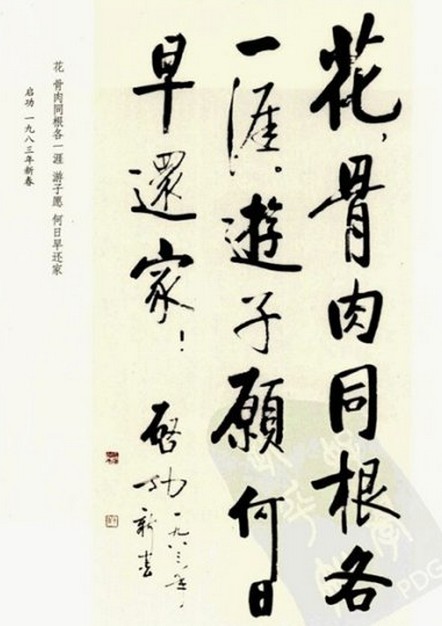 花，骨肉同根各
一涯。遊子願何日
早還家！
啓功一九八三年
新春
花 骨肉同根各一涯 游子愿 何日早还家
启功 一九八三年新春
PDG